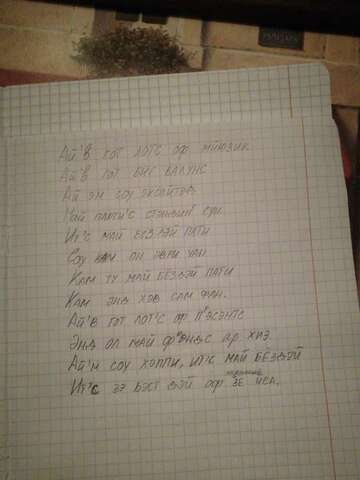 Ай'в гот лотс оф мйюзик
Ай'в гот биг балунс
Ай эм соу эксайтед
Май пати'с
Ит'с май бёздэй пати
Соу кам он эври уан
Кам ту май бёздэй пати
Кам энд хэв сам фан.
Ай'в гот лот'с оф п'эсэнтс
Энд ол май ф'эндс ар хиэ
Ай'м соу хэппи, ит'с май бёздэй
Ит'с зэ бэст дэй оф зе иса.